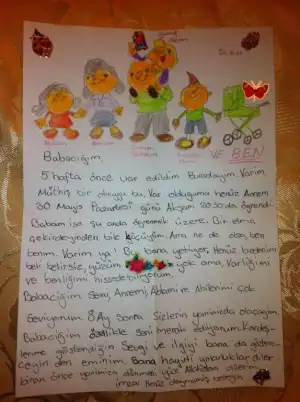 Babacığım,
5 hafta önce var edildim. Buradayım. Varım.
Müthiş bir duygu bu. Var olduğumu henüz Annem
30 Mayıs Pazartesi günü Akşam 20:30'da öğrendi.
Babam ise şu anda öğrenmek üzere. Bir elma
çekirdeğinden bile küçüğüm. Ama ne de olsa ben
benim. Varım ya! Bu bana yetiyor. Henüz bedenim
belli belirsiz, yüzüm yok ama, Varlığımı
ve benliğimi hissedebiliyorum.
Babacığım Seni, Annemi, Ablamı ve Abilerimi çok
Seviyorum. 8 Ay Sonra Sizlerin yanınızda olacağım.
Babacığım özellikle seni merak ediyorum. Kardeş-
lerime gösterdiğin Sevgi ve ilgiyi bana da göstere-
ceğinden eminim. Sana hayırlı yolculuklar diler
biran önce yanımıza dönmeni yüce Allahtan dilerim
imza: Henüz doğmamış bebeğin
VE BEN